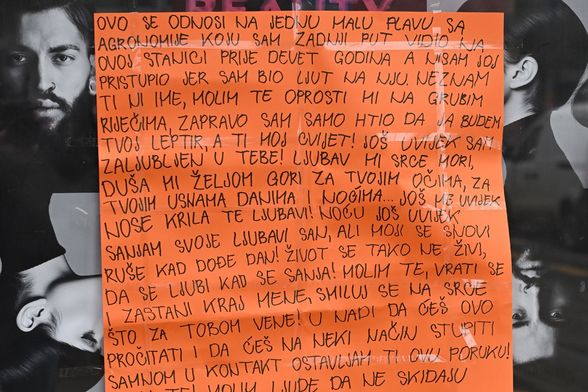 REALITY
OVO SE ODNOSI NA JEDNU MALU PLAVU SA
AGRONOMIJE KOJU SAM ZADNJI PUT VIDIO NA
OVOJ STANICI PRIJE DEVET GODINA A NISAM JOJ
PRISTUPIO JER SAM BIO LJUT NA NJU NEZNAM
TI NI IME, MOLIM TE OPROSTI MI NA GRUBIM
RIJEČIMA, ZAPRAVO SAM SAMO HTIO DA JA BUDEM
TVOJ LEPTIR A TI MOJ CVIJET! JOŠ UVIJEK SAM
ZALJUBLJEN U TEBE! LJUBAV MI SRCE MORI,
DUŠA MI ŽELJOM GORI ZA TVOJIM OČIMA, ZA
TVOJIM USNAMA DANIMA I NOĆIMA... JOŠ ME UVIJEK
NOSE KRILA TE LJUBAVI! NOĆU JOŠ UVIJEK
SANJAM SVOJE LJUBAVI SAN, ALI MOJI SE SNOVI
RUŠE KAD DOĐE DAN! ŽIVOT SE TAKO NE ŽIVI,
DA SE LJUBI KAD SE SANJA! MOLIM TE, VRATI SE
I ZASTANI KRAJ MENE, SMILUJ SE NA SRCE
ŠTO ZA TOBOM VENE! U NADI DA ĆEŠ OVO
PROČITATI I DA ĆEŠ NA NEKI NAČIN STUPITI
SAMNOM U KONTAKT OSTAVLJAM TI OVU PORUKU!
TE! MOLIM LJUDE DA NE SKIDAJU